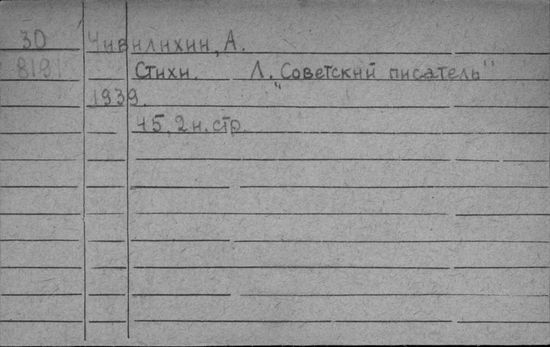 30 Чивилихин, А.
819 Стихи. Л. "Советский писатель"
1939.
45, 2 н. стр.